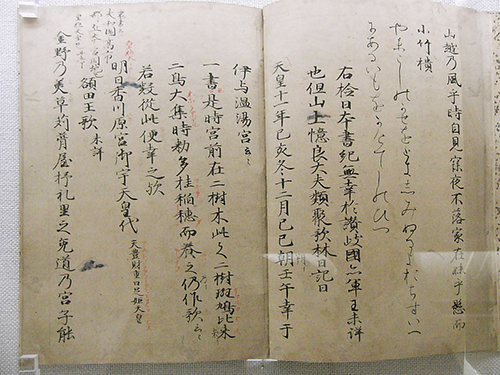 山越乃風乎時自見寐夜不落家在妹乎懸而
小竹樻
やまこしのかせをときしみぬるよおちすいへ
にあるいもをかけてしのひつ
右捡日本書紀無幸於讃岐國亦軍王未詳
也但山上憶良大夫類聚歌林曰記曰
天皇十一年己亥冬十二月己巳朔壬午幸于
伊与温湯宮云々
一書是時宮前在二樹木此之二樹斑鳩比米
二鳥大集時勅多挂稲穂而養之仍作歌云々
若疑從此便幸之歟
明日香川原宮御宇天皇代 天豊財重日足姫天皇
額田王歌 未詳
金野乃美草苅葺屋杼礼里之兎道乃宮子能